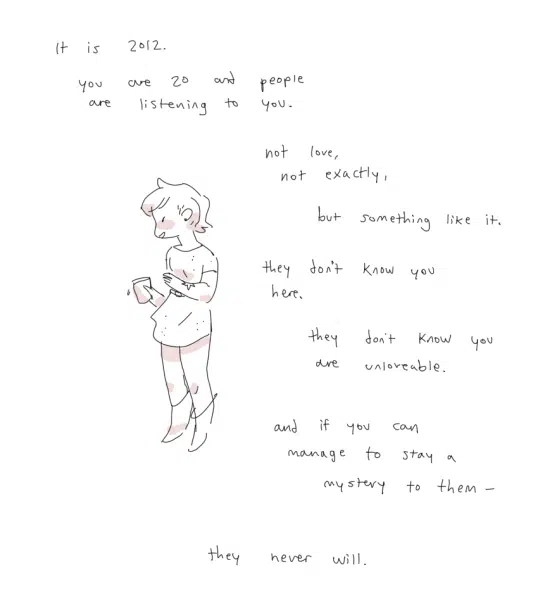 It is 2012.
you are 20 and people
are listening to you.
not love,
not exactly,
but something like it.
they don't know you
here.
they don't know you
are unloveable.
and if you can
manage to stay a
mystery to them –
they never will.